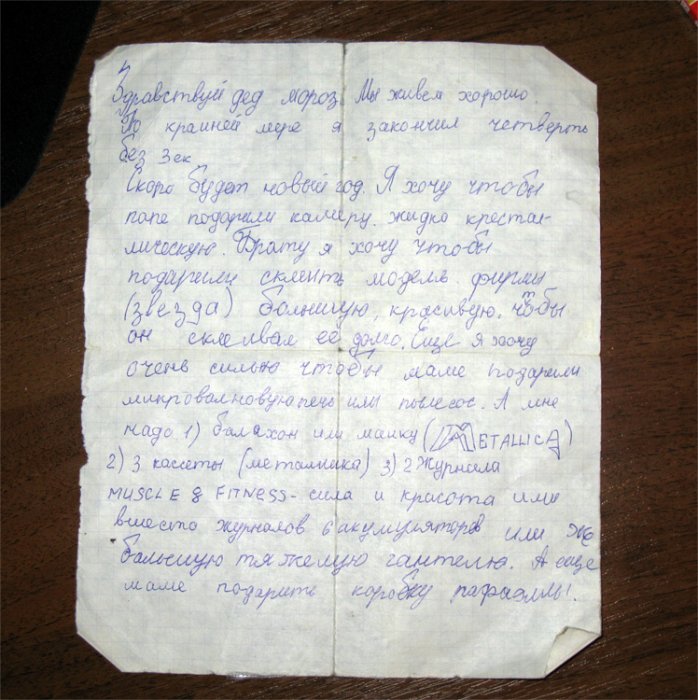 Здравствуй дед мороз Мы живем хорошо
По крайней мере я закончил четверть
без 3ек
Скоро будет новый год. Я хочу чтобы
папе подарили камеру. жидко кристал-
лическую. Брату я хочу чтобы
подарили склеить модель фирмы
(звезда) большую, красивую, чтобы
он склеивал её долго. Еще я хочу
очень сильно чтобы маме подарили
микровалновую печь или пылесос. А мне
надо 1) балахон или майку (METALLICA)
2) 3 кассеты (металлика) 3) 2 Журнала
MUSCLE & FITNESS - сила и красота или
вместо журналов 6 акумуляторов или же
большую тяжелую гантелю. А еще
маме подарить коробку рафаэллы.